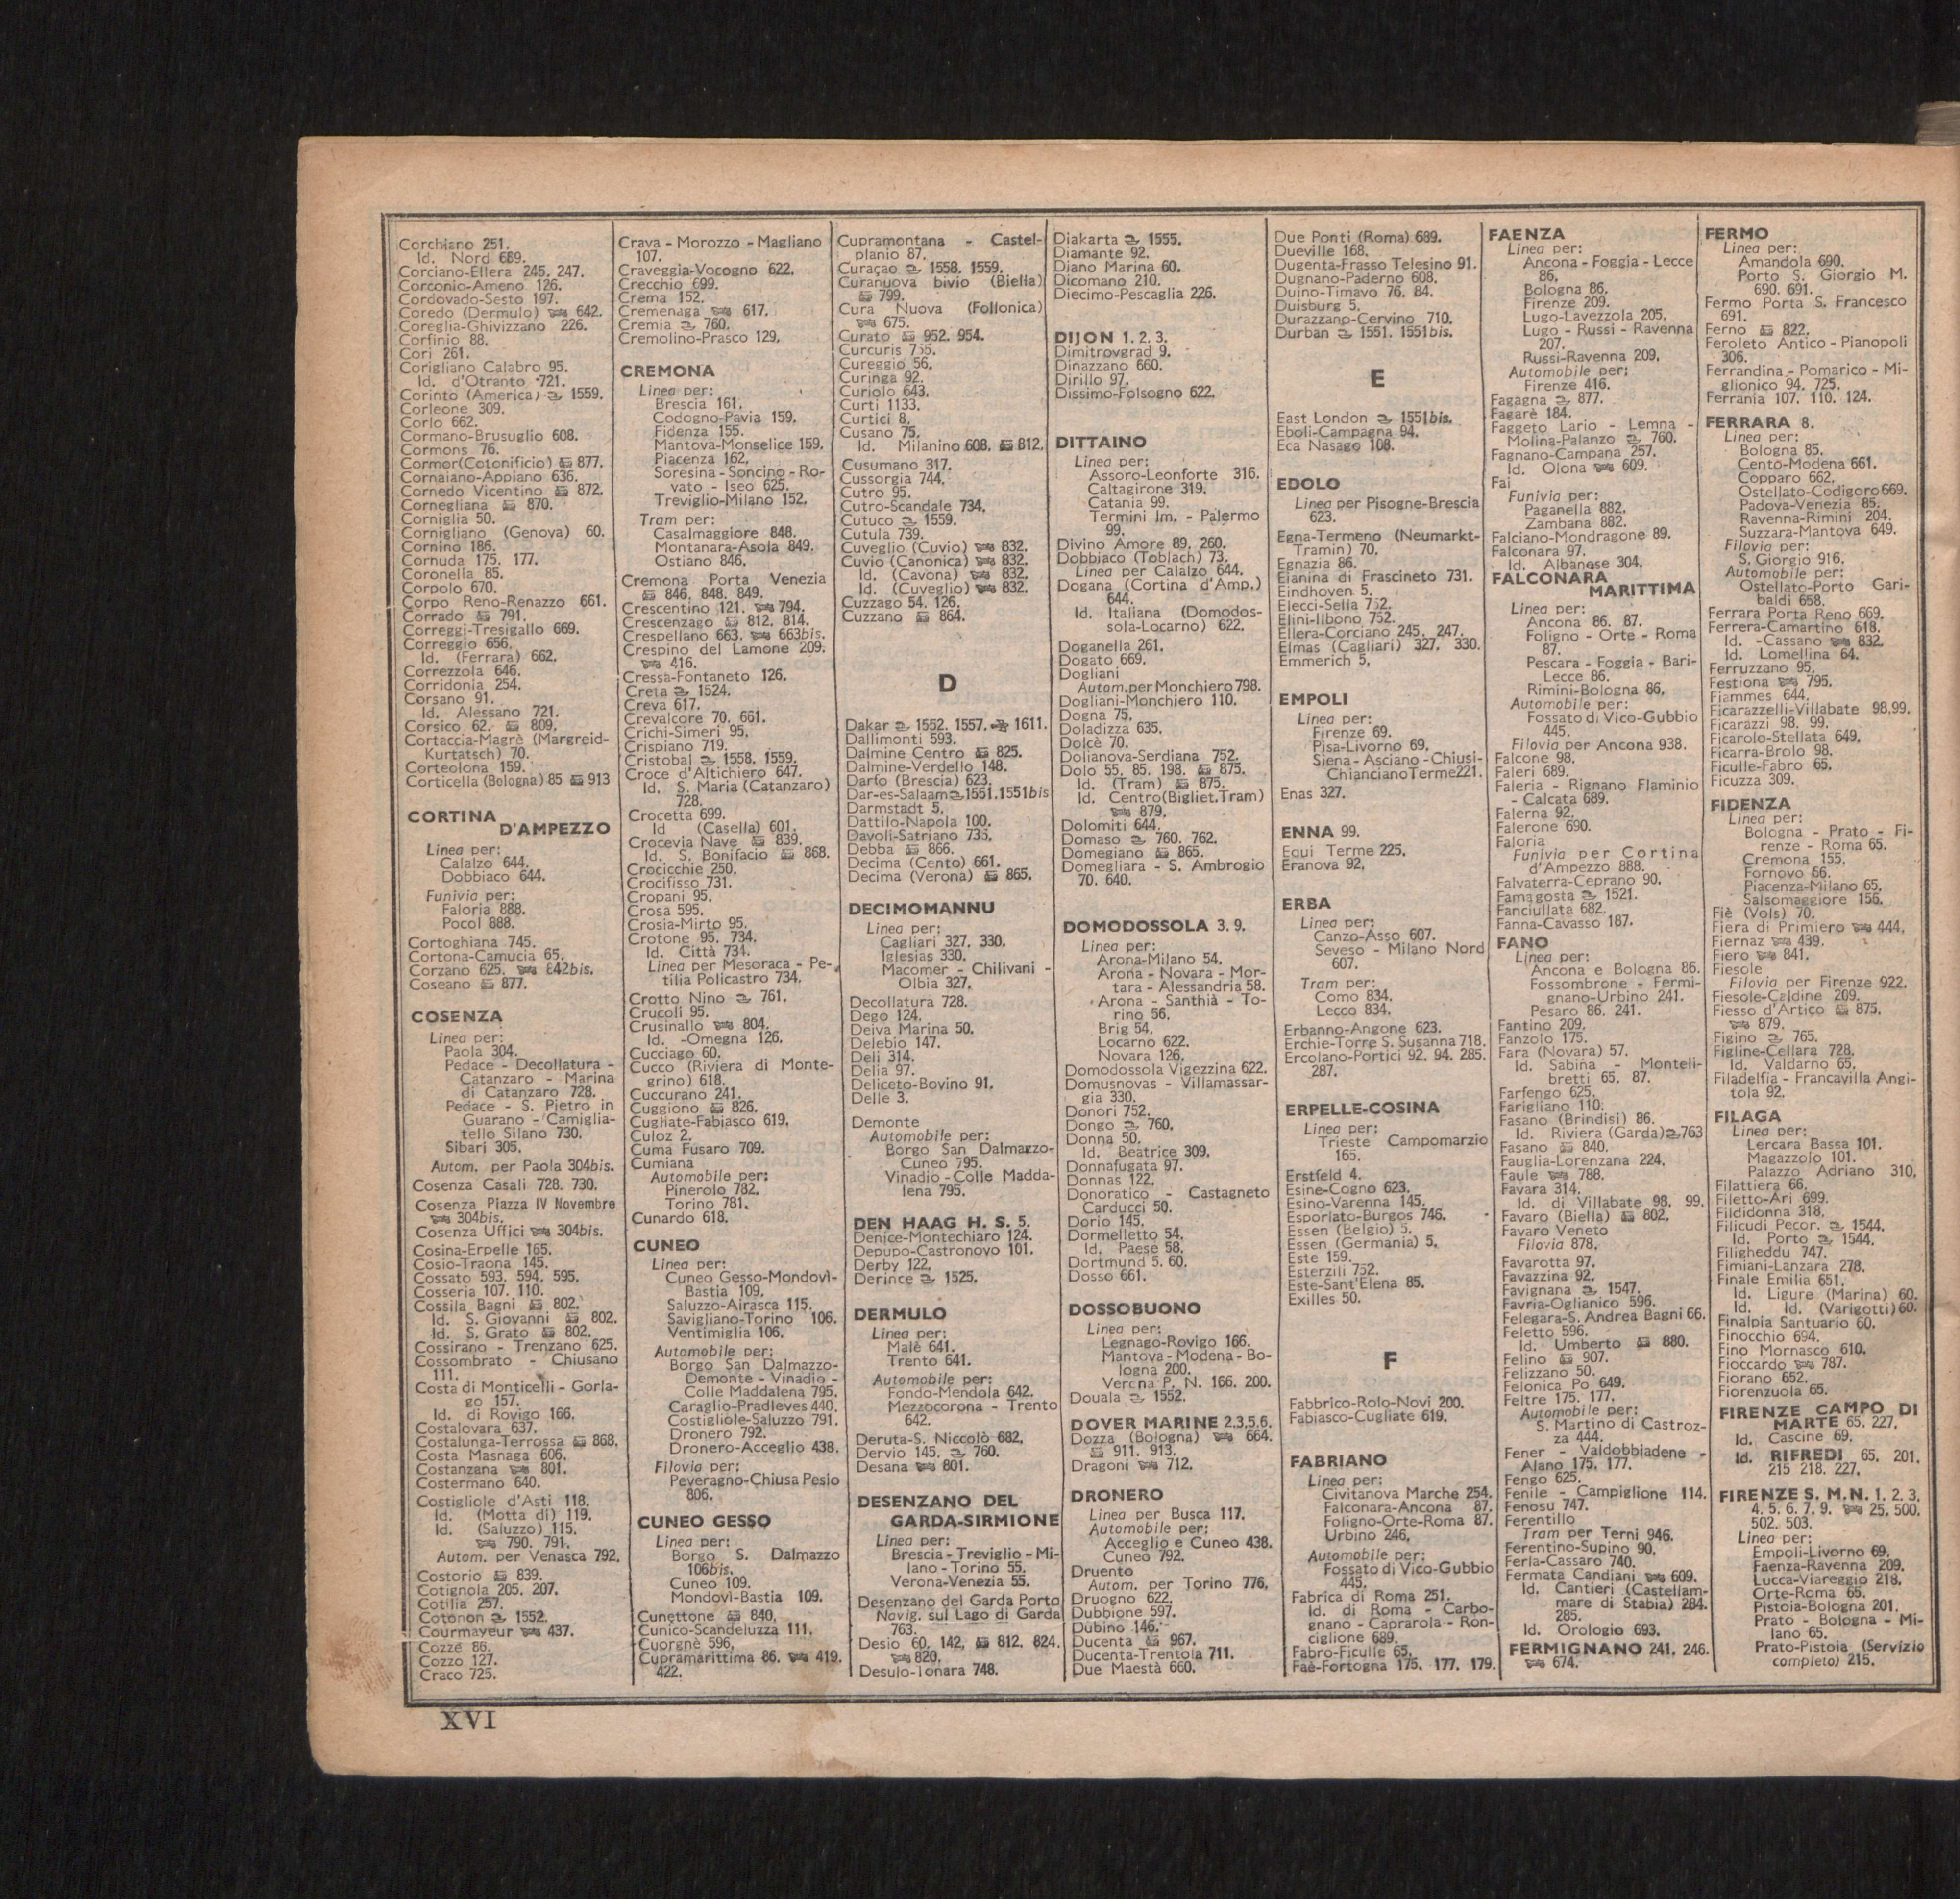 Corchiano 251.
Id. Nord 689.
Corciano-Ellera 245. 247.
Corconio-Ameno 126.
Cordovado-Sesto 197.
Coredo (Dermulo) 642.
Coreglia-Ghivizzano 226.
Corfinio 88.
Cori 261.
Corigliano Calabro 95.
Id. d'Otranto 721.
Corinto (America) 1559.
Corleone 309.
Corlo 662.
Cormano-Brusuglio 608.
Cormons 76.
Cormor(Cotonificio) 877.
Cornaiano-Appiano 636.
Cornedo Vicentino 872.
Cornegliana 870.
Corniglia 50.
Cornigliano (Genova) 60.
Cornino 186.
Cornuda 175. 177.
Coronella 85.
Corpolo 670.
Corpo Reno-Renazzo 661.
Corrado 791.
Correggi-Tresigallo 669.
Correggio 656.
Id. (Ferrara) 662.
Correzzola 646.
Corridonia 254.
Corsano 91.
Id. Alessano 721.
Corsico 62. 809.
Cortaccia-Magrè (Margreid-
Kurtatsch) 70.
Corteolona 159.
Corticella (Bologna) 85 913
CORTINA
D'AMPEZZO
Linea per:
Calalzo 644.
Dobbiaco 644.
Funivia per:
Faloria 888.
Pocol 888.
Cortoghiana 745.
Cortona-Camucia 65.
Corzano 625. 642bis.
Coseano 877.
COSENZA
Linea per:
Paola 304.
Pedace - Decollatura -
Catanzaro - Marina
di Catanzaro 728.
Pedace - S. Pietro in
Guarano - Camiglia-
tello Silano 730.
Sibari 305.
Autom. per Paola 304bis.
Cosenza Casali 728. 730.
Cosenza Piazza IV Novembre
304bis.
Cosenza Uffici 304bis.
Cosina-Erpelle 165.
Cosio-Traona 145.
Cossato 593. 594. 595.
Cosseria 107. 110.
Cossila Bagni 802.
Id. S. Giovanni 802.
Id. S. Grato 802.
Cossirano - Trenzano 625.
Cossombrato - Chiusano
111.
Costa di Monticelli - Gorla-
go 157.
Id. di Rovigo 166.
Costalovara 637.
Costalunga-Terrossa 868.
Costa Masnaga 606.
Costanzana 801.
Costermano 640.
Costigliole d'Asti 118.
Id. (Motta di) 119.
Id. (Saluzzo) 115.
790. 791.
Autom. per Venasca 792.
Costorio 839.
Cotignola 205. 207.
Cotilia 257.
Cotonon 1552.
Courmayeur 437.
Cozze 86.
Cozzo 127.
Craco 725.
Crava - Morozzo - Magliano
107.
Craveggia-Vocogno 622.
Crecchio 699.
Crema 152.
Cremenaga 617.
Cremia 760.
Cremolino-Prasco 129.
CREMONA
Linea per:
Brescia 161.
Codogno-Pavia 159.
Fidenza 155.
Mantova-Monselice 159.
Piacenza 162.
Soresina - Soncino - Ro-
vato - Iseo 625.
Treviglio-Milano 152.
Tram per:
Casalmaggiore 848.
Montanara-Asola 849.
Ostiano 846.
Cremona Porta Venezia
846. 848. 849.
Crescentino 121. 794.
Crescenzago 812. 814.
Crespellano 663. 663bis.
Crespino del Lamone 209.
416.
Cressa-Fontaneto 126.
Creta 1524.
Creva 617.
Crevalcore 70. 661.
Crichi-Simeri 95.
Crispiano 719.
Cristobal 1558. 1559.
Croce d'Altichiero 647.
Id. S. Maria (Catanzaro)
728.
Crocetta 699.
Id (Casella) 601.
Crocevia Nave 839.
Id. S. Bonifacio 868.
Crocicchie 250.
Crocifisso 731.
Cropani 95.
Crosa 595.
Crosia-Mirto 95.
Crotone 95. 734.
Id. Città 734.
Linea per Mesoraca - Pe-
tilia Policastro 734.
Crotto Nino 761.
Crucoli 95.
Crusinallo 804.
Id. -Omegna 126.
Cucciago 60.
Cucco (Riviera di Monte-
grino) 618.
Cuccurano 241.
Cuggiono 826.
Cugliate-Fabiasco 619.
Culoz 2.
Cuma Fusaro 709.
Cumiana
Automobile per:
Pinerolo 782.
Torino 781.
Cunardo 618.
CUNEO
Linea per:
Cuneo Gesso-Mondovì-
Bastia 109.
Saluzzo-Airasca 115.
Savigliano-Torino 106.
Ventimiglia 106.
Automobile per:
Borgo San Dalmazzo-
Demonte - Vinadio -
Colle Maddalena 795.
Caraglio-Pradleves 440.
Costigliole-Saluzzo 791.
Dronero 792.
Dronero-Acceglio 438.
Filovia per:
Peveragno-Chiusa Pesio
806.
CUNEO GESSO
Linea per:
Borgo S. Dalmazzo
106bis.
Cuneo 109.
Mondovì-Bastia 109.
Cunettone 840.
Cunico-Scandeluzza 111.
Cuorgnè 596.
Cupramarittima 86. 419.
422.
Cupramontana - Castel-
planio 87.
Curaçao 1558. 1559.
Curanuova bivio (Biella)
799.
Cura Nuova (Follonica)
675.
Curato 952. 954.
Curcuris 755.
Cureggio 56.
Curinga 92.
Curiolo 643.
Curti 1133.
Curtici 8.
Cusano 75.
Id. Milanino 608. 812.
Cusumano 317.
Cussorgia 744.
Cutro 95.
Cutro-Scandale 734.
Cutuco 1559.
Cutula 739.
Cuveglio (Cuvio) 832.
Cuvio (Canonica) 832.
Id. (Cavona) 832.
Id. (Cuveglio) 832.
Cuzzago 54. 126.
Cuzzano 864.
D
Dakar 1552. 1557. 1611.
Dallimonti 593.
Dalmine Centro 825.
Dalmine-Verdello 148.
Darfo (Brescia) 623.
Dar-es-Salaam 1551.1551bis
Darmstadt 5.
Dattilo-Napola 100.
Davoli-Satriano 735.
Debba 866.
Decima (Cento) 661.
Decima (Verona) 865.
DECIMOMANNU
Linea per:
Cagliari 327. 330.
Iglesias 330.
Macomer - Chilivani -
Olbia 327.
Decollatura 728.
Dego 124.
Deiva Marina 50.
Delebio 147.
Deli 314.
Delia 97.
Deliceto-Bovino 91.
Delle 3.
Demonte
Automobile per:
Borgo San Dalmazzo-
Cuneo 795.
Vinadio - Colle Madda-
lena 795.
DEN HAAG H. S. 5.
Denice-Montechiaro 124.
Depupo-Castronovo 101.
Derby 122.
Derince 1525.
DERMULO
Linea per:
Malè 641.
Trento 641.
Automobile per:
Fondo-Mendola 642.
Mezzocorona - Trento
642.
Deruta-S. Niccolò 682.
Dervio 145. 760.
Desana 801.
DESENZANO DEL
GARDA-SIRMIONE
Linea per:
Brescia - Treviglio - Mi-
lano - Torino 55.
Verona-Venezia 55.
Desenzano del Garda Porto
Navig. sul Lago di Garda
763.
Desio 60. 142. 812. 824.
820.
Desulo-Tonara 748.
Diakarta 1555.
Diamante 92.
Diano Marina 60.
Dicomano 210.
Diecimo-Pescaglia 226.
DIJON 1. 2. 3.
Dimitrovgrad 9.
Dinazzano 660.
Dirillo 97.
Dissimo-Folsogno 622.
DITTAINO
Linea per:
Assoro-Leonforte 316.
Caltagirone 319.
Catania 99.
Termini Im. - Palermo
99.
Divino Amore 89. 260.
Dobbiaco (Toblach) 73.
Linea per Calalzo 644.
Dogana (Cortina d'Amp.)
644.
Id. Italiana (Domodos-
sola-Locarno) 622.
Doganella 261.
Dogato 669.
Dogliani
Autom.per Monchiero 798.
Dogliani-Monchiero 110.
Dogna 75.
Doladizza 635.
Dolcè 70.
Dolianova-Serdiana 752.
Dolo 55. 85. 198. 875.
Id. (Tram) 875.
Id. Centro(Bigliet.Tram)
879.
Dolomiti 644.
Domaso 760. 762.
Domegiano 865.
Domegliara - S. Ambrogio
70. 640.
DOMODOSSOLA 3. 9.
Linea per:
Arona-Milano 54.
Arona - Novara - Mor-
tara - Alessandria 58.
Arona - Santhià - To-
rino 56.
Brig 54.
Locarno 622.
Novara 126.
Domodossola Vigezzina 622.
Domusnovas - Villamassar-
gia 330.
Donori 752.
Dongo 760.
Donna 50.
Id. Beatrice 309.
Donnafugata 97.
Donnas 122.
Donoratico - Castagneto
Carducci 50.
Dorio 145.
Dormelletto 54.
Id. Paese 58.
Dortmund 5. 60.
Dosso 661.
DOSSOBUONO
Linea per:
Legnago-Rovigo 166.
Mantova - Modena - Bo-
logna 200.
Verona P. N. 166. 200.
Douala 1552.
DOVER MARINE 2.3.5.6.
Dozza (Bologna) 664.
911. 913.
Dragoni 712.
DRONERO
Linea per Busca 117.
Automobile per:
Acceglio e Cuneo 438.
Cuneo 792.
Druento
Autom. per Torino 776.
Druogno 622.
Dubbione 597.
Dubino 146.
Ducenta 967.
Ducenta-Trentola 711.
Due Maestà 660.
Due Ponti (Roma) 689.
Dueville 168.
Dugenta-Frasso Telesino 91.
Dugnano-Paderno 608.
Duino-Timavo 76. 84.
Duisburg 5.
Durazzano-Cervino 710.
Durban 1551. 1551bis.
E
East London 1551bis.
Eboli-Campagna 94.
Eca Nasago 108.
EDOLO
Linea per Pisogne-Brescia
623.
Egna-Termeno (Neumarkt-
Tramin) 70.
Egnazia 86.
Eianina di Frascineto 731.
Eindhoven 5.
Elecci-Sella 752.
Elini-Ilbono 752.
Ellera-Corciano 245. 247.
Elmas (Cagliari) 327. 330.
Emmerich 5.
EMPOLI
Linea per:
Firenze 69.
Pisa-Livorno 69.
Siena - Asciano - Chiusi-
Chianciano Terme 221.
Enas 327.
ENNA 99.
Equi Terme 225.
Eranova 92.
ERBA
Linea per:
Canzo-Asso 607.
Seveso - Milano Nord
607.
Tram per:
Como 834.
Lecco 834.
Erbanno-Angone 623.
Erchie-Torre S. Susanna 718.
Ercolano-Portici 92. 94. 285.
287.
ERPELLE-COSINA
Linea per:
Trieste Campomarzio
165.
Erstfeld 4.
Esine-Cogno 623.
Esino-Varenna 145.
Esporlato-Burgos 746.
Essen (Belgio) 5.
Essen (Germania) 5.
Este 159.
Esterzili 752.
Este-Sant'Elena 85.
Exilles 50.
F
Fabbrico-Rolo-Novi 200.
Fabiasco-Cugliate 619.
FABRIANO
Linea per:
Civitanova Marche 254.
Falconara-Ancona 87.
Foligno-Orte-Roma 87.
Urbino 246.
Automobile per:
Fossato di Vico-Gubbio
445.
Fabrica di Roma 251.
Id. di Roma - Carbo-
gnano - Caprarola - Ron-
ciglione 689.
Fabro-Ficulle 65.
Faè-Fortogna 175. 177. 179.
FAENZA
Linea per:
Ancona - Foggia - Lecce
86.
Bologna 86.
Firenze 209.
Lugo-Lavezzola 205.
Lugo - Russi - Ravenna
207.
Russi-Ravenna 209.
Automobile per:
Firenze 416.
Fagagna 877.
Fagarè 184.
Faggeto Lario - Lemna -
Molina-Palanzo 760.
Fagnano-Campana 257.
Id. Olona 609.
Fai
Funivia per:
Paganella 882.
Zambana 882.
Falciano-Mondragone 89.
Falconara 97.
Id. Albanese 304.
FALCONARA
MARITTIMA
Linea per:
Ancona 86. 87.
Foligno - Orte - Roma
87.
Pescara - Foggia - Bari-
Lecce 86.
Rimini-Bologna 86.
Automobile per:
Fossato di Vico-Gubbio
445.
Filovia per Ancona 938.
Falcone 98.
Faleri 689.
Faleria - Rignano Flaminio
- Calcata 689.
Falerna 92.
Falerone 690.
Faloria
Funivia per Cortina
d'Ampezzo 888.
Falvaterra-Ceprano 90.
Famagosta 1521.
Fanciullata 682.
Fanna-Cavasso 187.
FANO
Linea per:
Ancona e Bologna 86.
Fossombrone - Fermi-
gnano-Urbino 241.
Pesaro 86. 241.
Fantino 209.
Fanzolo 175.
Fara (Novara) 57.
Id. Sabina - Monteli-
bretti 65. 87.
Farfengo 625.
Farigliano 110.
Fasano (Brindisi) 86.
Id. Riviera (Garda) 763
Fasano 840.
Fauglia-Lorenzana 224.
Faule 788.
Favara 314.
Id. di Villabate 98. 99.
Favaro (Biella) 802.
Favaro Veneto
Filovia 878.
Favarotta 97.
Favazzina 92.
Favignana 1547.
Favria-Oglianico 596.
Felegara-S. Andrea Bagni 66.
Feletto 596.
Id. Umberto 880.
Felino 907.
Felizzano 50.
Felonica Po 649.
Feltre 175. 177.
Automobile per:
S. Martino di Castroz-
za 444.
Fener - Valdobbiadene -
Alano 175. 177.
Fengo 625.
Fenile - Campiglione 114.
Fenosu 747.
Ferentillo
Tram per Terni 946.
Ferentino-Supino 90.
Ferla-Cassaro 740.
Fermata Candiani 609.
Id. Cantieri (Castellam-
mare di Stabia) 284.
285.
Id. Orologio 693.
FERMIGNANO 241. 246.
674.
FERMO
Linea per:
Amandola 690.
Porto S. Giorgio M.
690. 691.
Fermo Porta S. Francesco
691.
Ferno 822.
Feroleto Antico - Pianopoli
306.
Ferrandina - Pomarico - Mi-
glionico 94. 725.
Ferrania 107. 110. 124.
FERRARA 8.
Linea per:
Bologna 85.
Cento-Modena 661.
Copparo 662.
Ostellato-Codigoro 669.
Padova-Venezia 85.
Ravenna-Rimini 204.
Suzzara-Mantova 649.
Filovia per:
S. Giorgio 916.
Automobile per:
Ostellato-Porto Gari-
baldi 658.
Ferrara Porta Reno 669.
Ferrera-Camartino 618.
Id. -Cassano 832.
Id. Lomellina 64.
Ferruzzano 95.
Festiona 795.
Fiammes 644.
Ficarazzelli-Villabate 98.99.
Ficarazzi 98. 99.
Ficarolo-Stellata 649.
Ficarra-Brolo 98.
Ficulle-Fabro 65.
Ficuzza 309.
FIDENZA
Linea per:
Bologna - Prato - Fi-
renze - Roma 65.
Cremona 155.
Fornovo 66.
Piacenza-Milano 65.
Salsomaggiore 156.
Fiè (Vols) 70.
Fiera di Primiero 444.
Fiernaz 439.
Fiero 841.
Fiesole
Filovia per Firenze 922.
Fiesole-Caldine 209.
Fiesso d'Artico 875.
879.
Figino 765.
Figline-Cellara 728.
Id. Valdarno 65.
Filadelfia - Francavilla Angi-
tola 92.
FILAGA
Linea per:
Lercara Bassa 101.
Magazzolo 101.
Palazzo Adriano 310.
Filattiera 66.
Filetto-Ari 699.
Fildidonna 318.
Filicudi Pecor. 1544.
Id. Porto 1544.
Filigheddu 747.
Fimiani-Lanzara 278.
Finale Emilia 651.
Id. Ligure (Marina) 60.
Id. Id. (Varigotti) 60.
Finalpia Santuario 60.
Finocchio 694.
Fino Mornasco 610.
Fioccardo 787.
Fiorano 652.
Fiorenzuola 65.
FIRENZE CAMPO DI
MARTE 65. 227.
Id. Cascine 69.
Id. RIFREDI 65. 201.
215 218. 227.
FIRENZE S. M.N. 1. 2. 3.
4. 5. 6. 7. 9. 25. 500.
502. 503.
Linea per:
Empoli-Livorno 69.
Faenza-Ravenna 209.
Lucca-Viareggio 218.
Orte-Roma 65.
Pistoia-Bologna 201.
Prato - Bologna - Mi-
lano 65.
Prato-Pistoia (Servizio
completo) 215.
XVI